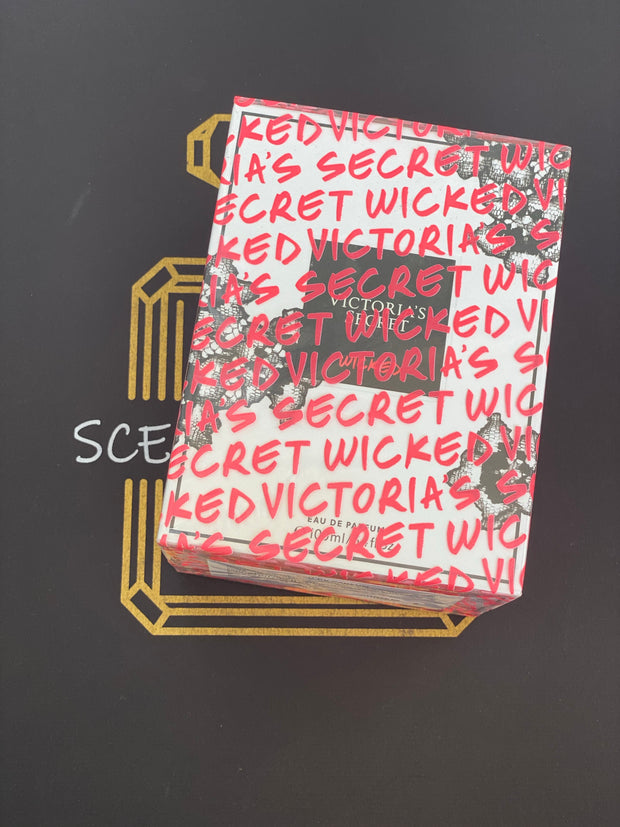 KED VICTORIA'S
IA'S SECRET WIC
ECRET WICKED VI
KED VICTORIA'S
IA'S SECRET WIC
VICTORIA'S
SECRET
SECRET WICKED VI
WICKED
KED VICTORIA'S S
IA'S SECRET WIC
ECRET WICKED VI
SCE
KED VICTORIA'S S
EAU DE PARFUM
100ml/3.4 fl oz
A'S SECRET WIC
WICKED VI